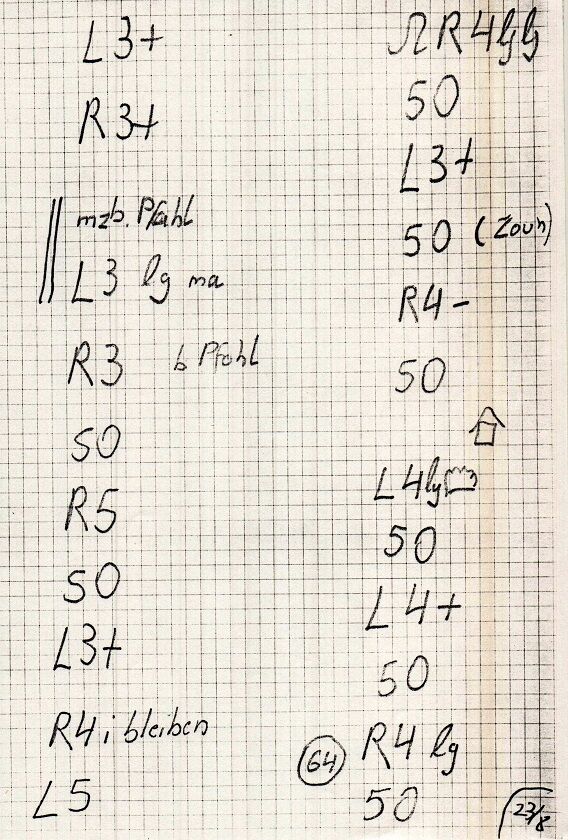 L3+
R3+
mzb. Pfahl
L3 lg ma
R3 b Pfahl
50
R5
50
L3+
R4 i bleiben
L5
R4 lg lg
50
L3+
50 (Zaun)
R4-
50
L4 lg
50
L4+
50
64
R4 lg
50
23/8